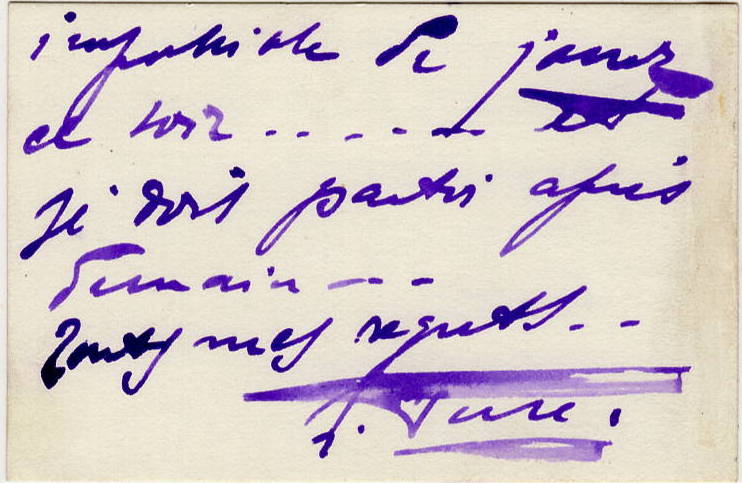 impossible de jouer
ce soir . . . . . . et
je dois partir après
demain - - -
Toutes mes regrets . .